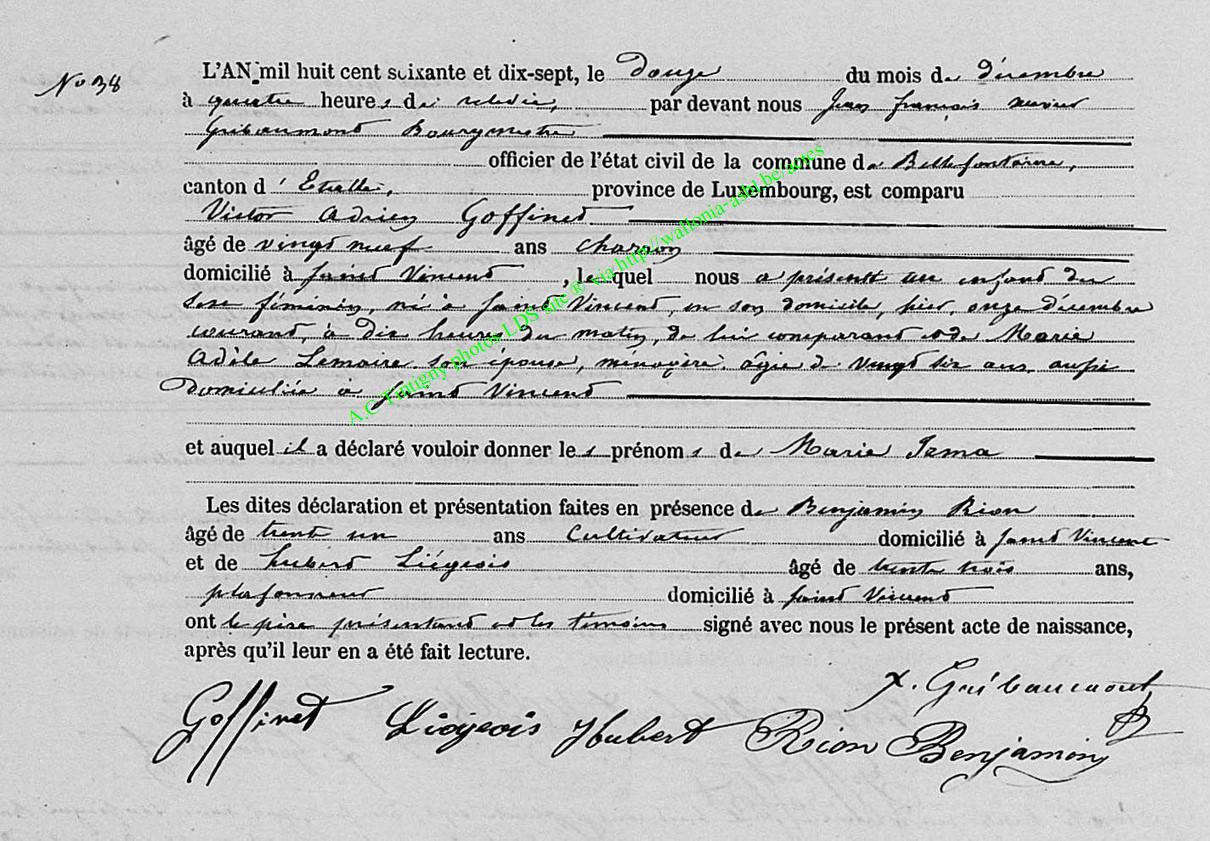 No 38
L'AN mil huit cent soixante et dix-sept, le Douze du mois de décembre
à quatre heures de relevée, par devant nous Jean françois xavier
Gribaumont Bourgmestre
officier de l'état civil de la commune de Bellefontaine,
canton d'Etalle, province de Luxembourg, est comparu
Victor Adrien Goffinet
âgé de vingt neuf ans charron
domicilié à Saint Vincent, lequel nous a présenté un enfant du
sexe féminin, né à Saint Vincent, en son domicile, hier, onze décembre
courant, à dix heures du matin, de lui comparant et de Marie
Adèle Lemaire son épouse, ménagère, âgée de vingt six ans, aussi
domiciliée à Saint Vincent
et auquel il a déclaré vouloir donner les prénoms de Marie Irma
Les dites déclaration et présentation faites en présence de Benjamin Rion
âgé de trente un ans Cultivateur domicilié à Saint Vincent
et de hubert Liégeois âgé de trente trois ans,
plafonneur domicilié à Saint Vincent
ont le père présentant et les témoins signé avec nous le présent acte de naissance,
après qu'il leur en a été fait lecture.
x. Gribaumont
Goffinet Liégeois Hubert Rion Benjamin
A.C Tintigny photos LDS site © via http://wallonia-asbl.be/actes